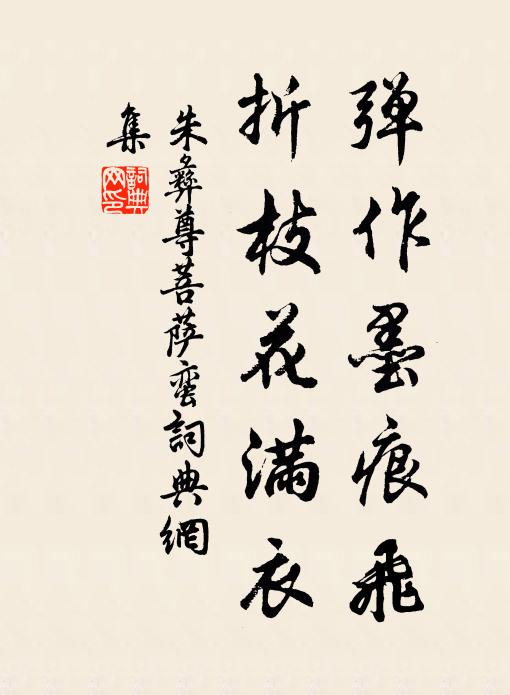 弹作墨痕飛
折枝花满衣
朱彝尊菩萨蛮詞典網
集
詞典
网印